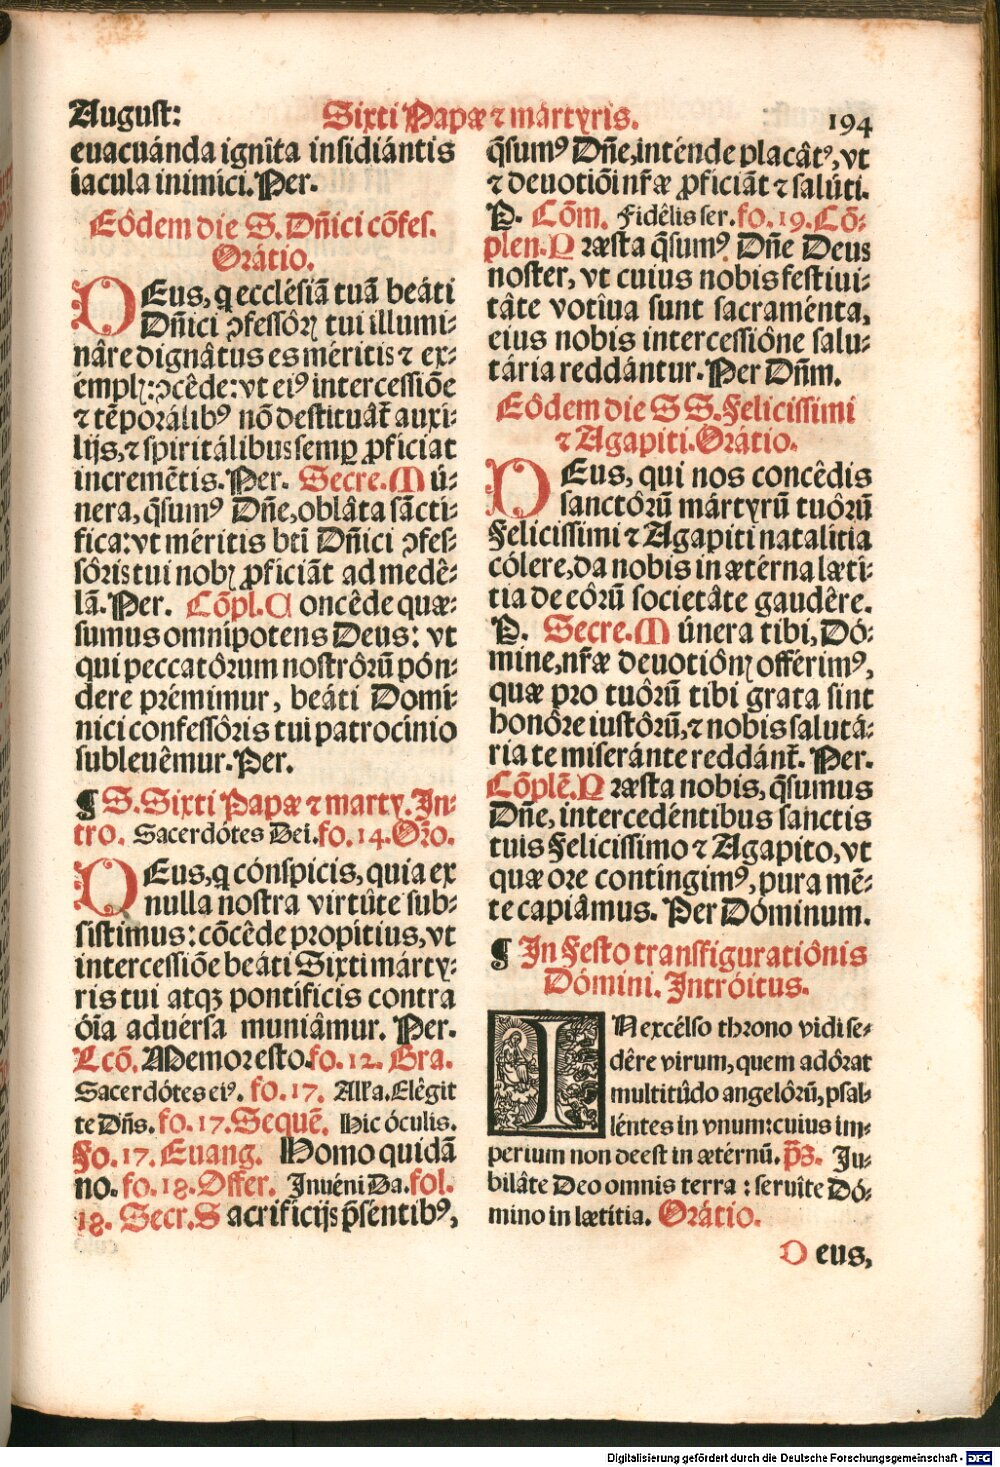 August: Sixti Papæ ⁊ mártyris. 194
euacuánda ignîta insidiántis
iacula inimici. Per.
Eôdem die S. Dñici cõfes.
Orátio.
DEus, q ecclésiã tuã beáti
Dñici ɔfessôrꝝ tui illumi-
nâre dignâtus es méritis ⁊ ex-
émplꝭ: ɔcêde: vt eiꝰ intercessiõe
⁊ tẽporálibꝰ nõ destituát̃ auxi-
lijs, ⁊ spiritálibus semꝑ ꝓficiat
incremẽtis. Per. Secre. Mú-
nera, q̃sumꝰ Dñe, oblâta sãcti-
fica: vt méritis bti Dñici ɔfes-
sôris tui nobꝭ ꝓficiãt ad medê-
lã. Per. Cõpl. Concêde quæ-
sumus omnípotens Deus: vt
qui peccatôrum nostrôrũ pón-
dere prémimur, beáti Domí-
nici confessôris tui patrocínio
subleuêmur. Per.
¶ S. Sixti Papæ ⁊ marty. In-
tro. Sacerdótes Dei. fo. 14. Oro.
DEus, q cónspicis, quia ex
nulla nostra virtûte sub-
sistimus: cõcêde propítius, vt
intercessiõe beáti Sixti márty-
ris tui atqꝫ pontíficis contra
óia aduérsa muniâmur. Per.
Lcõ. Memor esto. fo. 12. Gra.
Sacerdótes eiꝰ. fo. 17. Alľa. Elêgit
te Dñs. fo. 17. Sequẽ. Hic óculis.
Fo. 17. Euang. Homo quidã
no. fo. 18. Offer. Inuéni Da. fol.
18. Secr. Sacrifícijs p̃sentibꝰ,
q̃sumꝰ Dñe, inténde placâtꝰ, vt
⁊ deuotiõi nr̃æ ꝓficiãt ⁊ salúti.
P. Cõm. Fidêlis ser. fo. 19. Cõ-
plen. Præsta q̃sumꝰ Dñe Deus
noster, vt cuius nobis festiui-
tâte votîua sunt sacraménta,
eius nobis intercessiône salu-
tária reddántur. Per Dñm.
Eôdem die SS. Felicíssimi
⁊ Agapiti. Orátio.
DEus, qui nos concêdis
sanctôrũ mártyrũ tuôrũ
Felicíssimi ⁊ Agapiti natalítia
cólere, da nobis in ætérna læti-
tia de eôrũ societâte gaudêre.
P. Secre. Múnera tibi, Dó-
mine, nr̃æ deuotiônꝭ offérimꝰ,
quæ pro tuôrũ tibi grata sint
honôre iustôrũ, ⁊ nobis salutá-
ria te miseránte reddánt̃. Per.
Cõplẽ. Præsta nobis, q̃sumus
Dñe, intercedéntibus sanctis
tuis Felicíssimo ⁊ Agapito, vt
quæ ore contíngimꝰ, pura mẽ-
te capiâmus. Per Dóminum.
¶ In Festo transfiguratiônis
Dómini. Intróitus.
IN excélso throno vidi se-
dêre virum, quem adórat
multitûdo angelôrũ, psal-
léntes in vnum: cuius im-
perium non deest in ætérnũ. p̃ꝫ. Iu-
bilâte Deo omnis terra: seruîte Dó-
mino in lætítia. Orátio.
Deus,
Digitalisierung gefördert durch die Deutsche Forschungsgemeinschaft - DFG